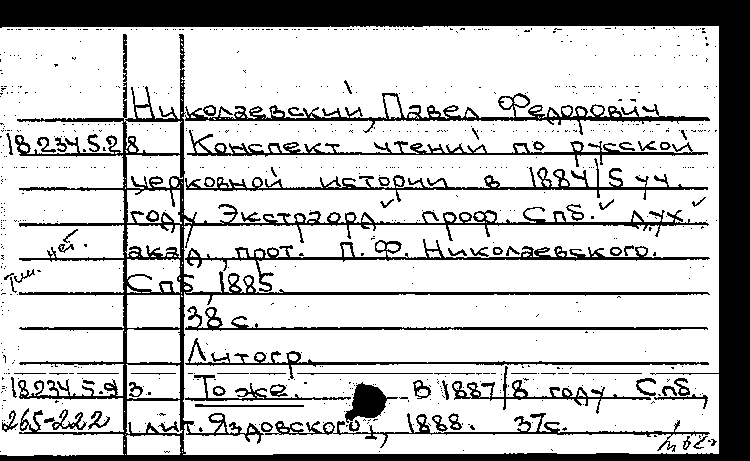 Николаевский, Павел Федорович
18.234.5.28. Конспект чтений по русской
церковной истории в 1884/5 уч.
году. Экстраорд. проф. Спб. дух.
акад., прот. П. Ф. Николаевского.
нет.
Спб, 1885.
38 с.
Литогр.
18.234.5.93. То же. В 1887/8 году. Спб.,
265-222 лит. Яздовского, 1888. 37с.